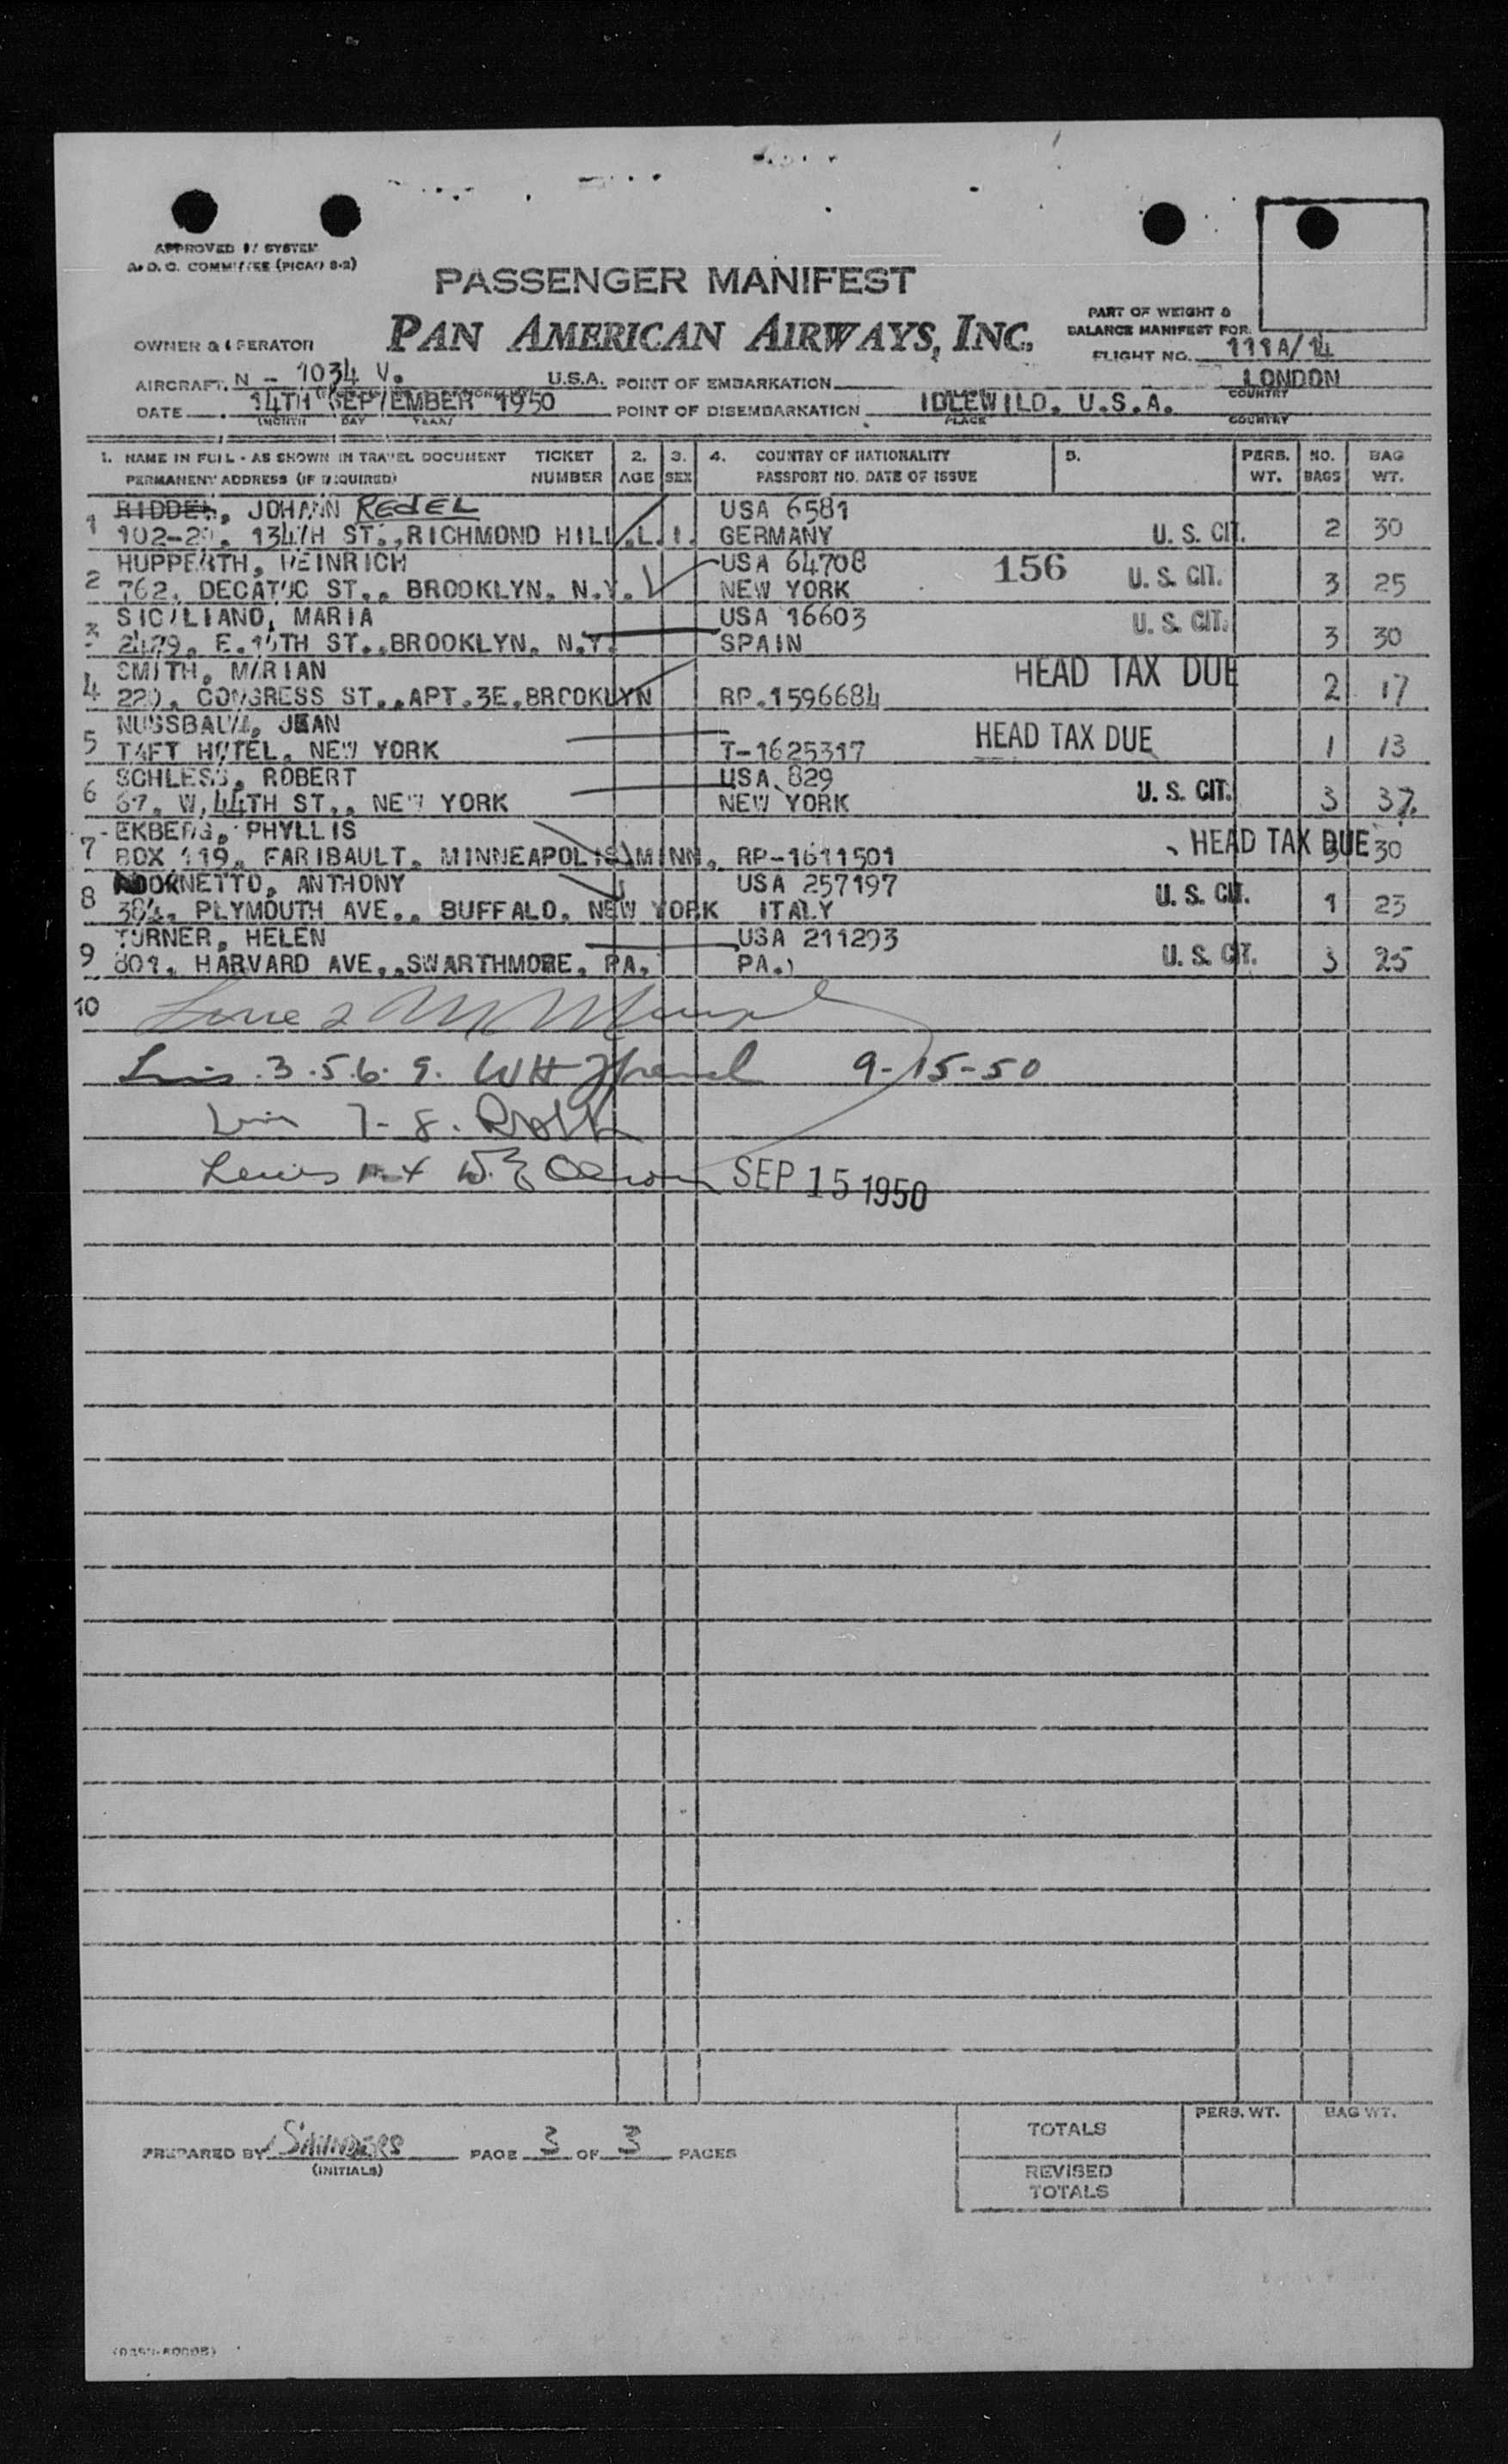 APPROVED BY SYSTEM
A. O. C. COMMITTEE (PICAO 8-2)
PASSENGER MANIFEST
PAN AMERICAN AIRWAYS, INC.
OWNER & OPERATOR
PART OF WEIGHT &
BALANCE MANIFEST FOR
FLIGHT NO. 111A/14
AIRCRAFT. N - 1034 V. U.S.A. POINT OF EMBARKATION LONDON
COUNTRY
DATE 14TH SEPTEMBER 1950 POINT OF DISEMBARKATION IDLEWILD. U.S.A.
(MONTH DAY YEAR) PLACE COUNTRY
1. NAME IN FULL - AS SHOWN IN TRAVEL DOCUMENT TICKET 2. 3. 4. COUNTRY OF NATIONALITY 5. PERS. NO. BAG
PERMANENT ADDRESS (IF REQUIRED) NUMBER AGE SEX PASSPORT NO. DATE OF ISSUE WT. BAGS WT.
1 RIDDEL, JOHANN REDEL USA 6581
134TH ST., RICHMOND HILL, L.I. GERMANY U. S. CIT. 2 30
HUPPERTH, HEINRICH USA 64708 156
2 762, DECATUC ST., BROOKLYN, N.Y. NEW YORK U. S. CIT. 3 25
SICILIANO, MARIA USA 16603 U. S. CIT.
3 E. ST., BROOKLYN, N.Y. SPAIN 3 30
SMITH, MARIAN HEAD TAX DUE
4 CONGRESS ST., APT.3E, BROOKLYN RP.1596684 2 17
NUSSBAUM, JEAN
5 TAFT HOTEL, NEW YORK T-1625317 HEAD TAX DUE 1 13
SCHLESS, ROBERT USA 829
6 67, W,44TH ST., NEW YORK NEW YORK U. S. CIT. 3 37
EKBERG, PHYLLIS
7 BOX 119, FARIBAULT, MINNEAPOLIS MINN. RP-1611501 HEAD TAX DUE 30
ADORNETTO, ANTHONY USA 257197
8 384, PLYMOUTH AVE., BUFFALO, NEW YORK ITALY U. S. CIT. 1 23
TURNER, HELEN USA 211293
9 801, HARVARD AVE., SWARTHMORE, PA. PA. U. S. CIT. 3 25
10
3.5.6.9. 9-15-50
7-8.
SEP 15 1950
PREPARED BY SAUNDERS PAGE 3 OF 3 PAGES
(INITIALS)
PERS. WT. BAG WT.
TOTALS
REVISED
TOTALS